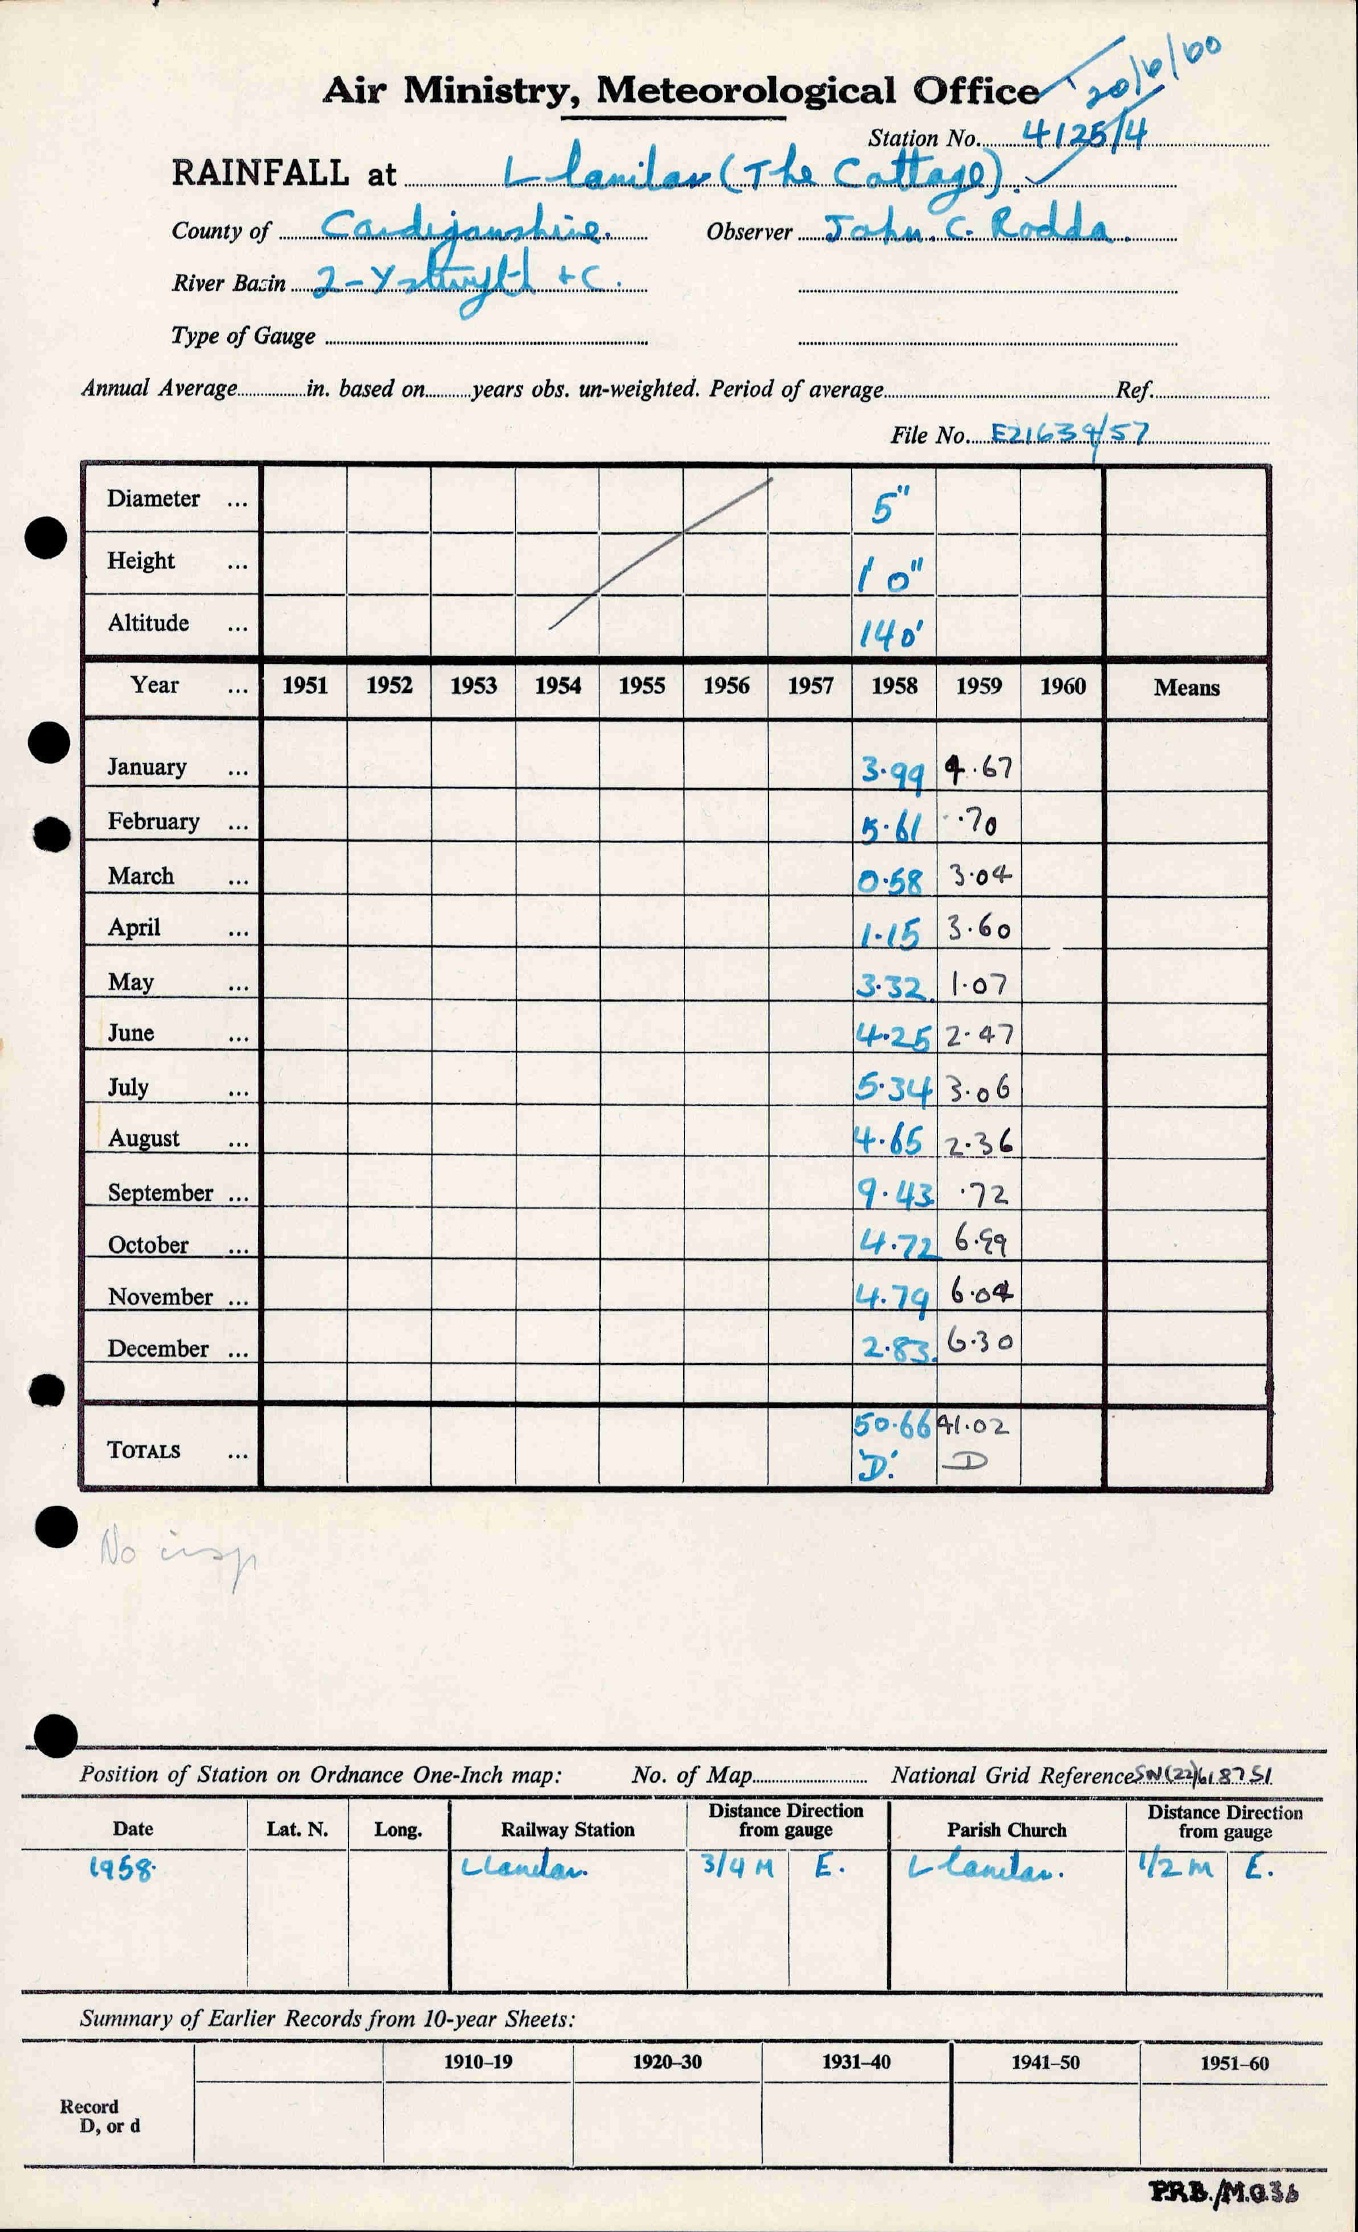 20/6/60
Air Ministry, Meteorological Office
Station No. 4125/4
RAINFALL at Llanilar (The Cottage).
County of Cardiganshire. Observer John. C. Rodda.
River Basin 2-Ystwyth + C.
Type of Gauge
Annual Average in. based on years obs. un-weighted. Period of average Ref.
File No. E21639/57
Diameter ... 5"
Height ... 1' 0"
Altitude ... 140'
Year ... 1951 1952 1953 1954 1955 1956 1957 1958 1959 1960 Means
January ... 3.99 4.67
February ... 5.61 .70
March ... 0.58 3.04
April ... 1.15 3.60
May ... 3.32 1.07
June ... 4.25 2.47
July ... 5.34 3.06
August ... 4.65 2.36
September ... 9.43 .72
October ... 4.72 6.99
November ... 4.79 6.04
December ... 2.83 6.30
TOTALS ... 50.66 41.02
'D.' D
No insp
Position of Station on Ordnance One-Inch map: No. of Map National Grid Reference SN(22)618751
Date Lat. N. Long. Railway Station Distance Direction from gauge Parish Church Distance Direction from gauge
1958. Llanilar. 3/4 M E. Llanilar. 1/2 M E.
Summary of Earlier Records from 10-year Sheets:
1910–19 1920–30 1931–40 1941–50 1951–60
Record
D, or d
P.R.B./M.O.36